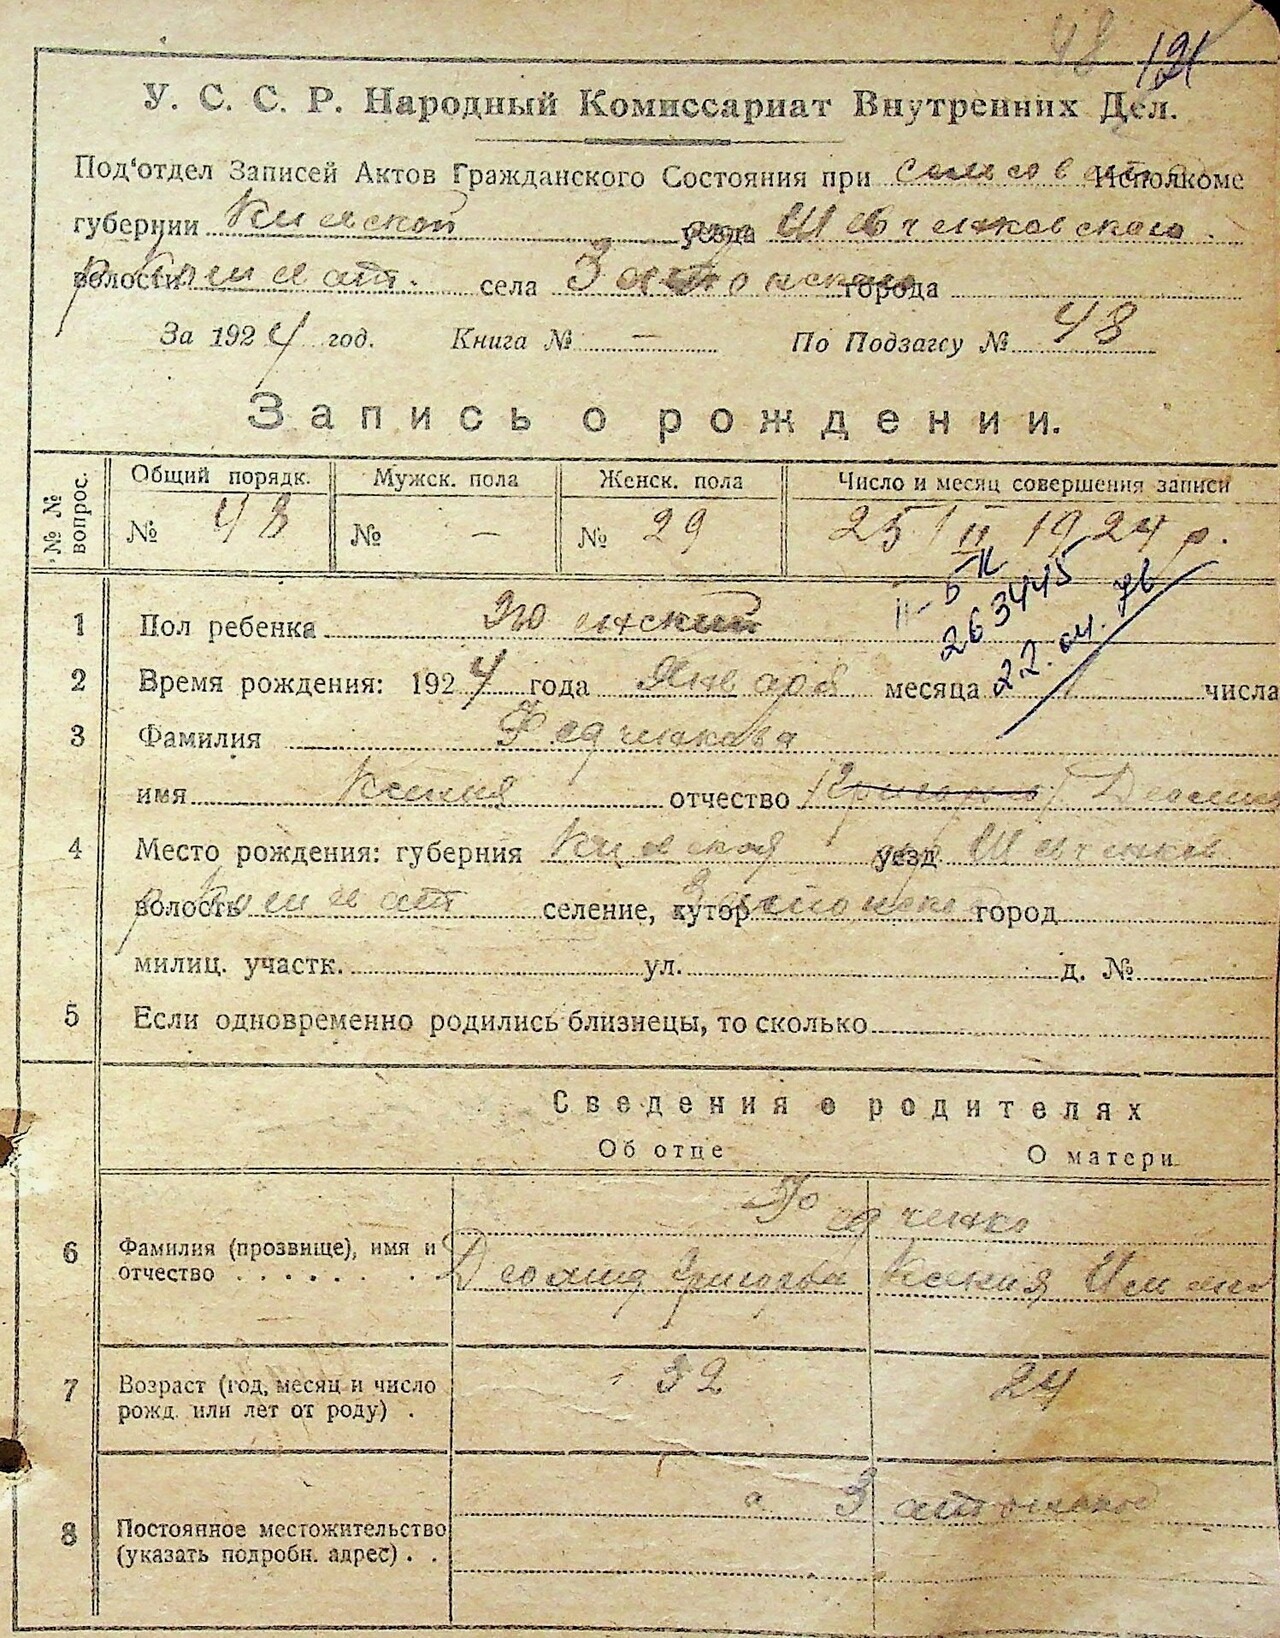 48 121
У. С. С. Р. Народный Комиссариат Внутренних Дел.
Под'отдел Записей Актов Гражданского Состояния при сельсовета Исполкоме
губернии Киевской уезда Шевченковского
волости р. Кошеват. села Затонское города
За 1924 год. Книга № — По Подзагсу № 48
Запись о рождении.
№ № вопрос. Общий порядк. Мужск. пола Женск. пола Число и месяц совершения записи
№ 48 № — № 29 25/II 1924 р.
II-БК
263445
22.04.76
1 Пол ребенка Женский
2 Время рождения: 1924 года Января месяца числа
3 Фамилия Федченкова
имя Ксения отчество Деомид
4 Место рождения: губерния Киевская уезд окр Шевченков
волость р. Кошеват селение, хутор Затонское город
милиц. участк. ул. д. №
5 Если одновременно родились близнецы, то сколько
Сведения о родителях
Об отце О матери
Федченко
6 Фамилия (прозвище), имя и отчество . . . . . . . Деомид Григорьев Ксения
7 Возраст (год, месяц и число рожд. или лет от роду) . 32 24
8 Постоянное местожительство (указать подробн. адрес) . . с. Затонское